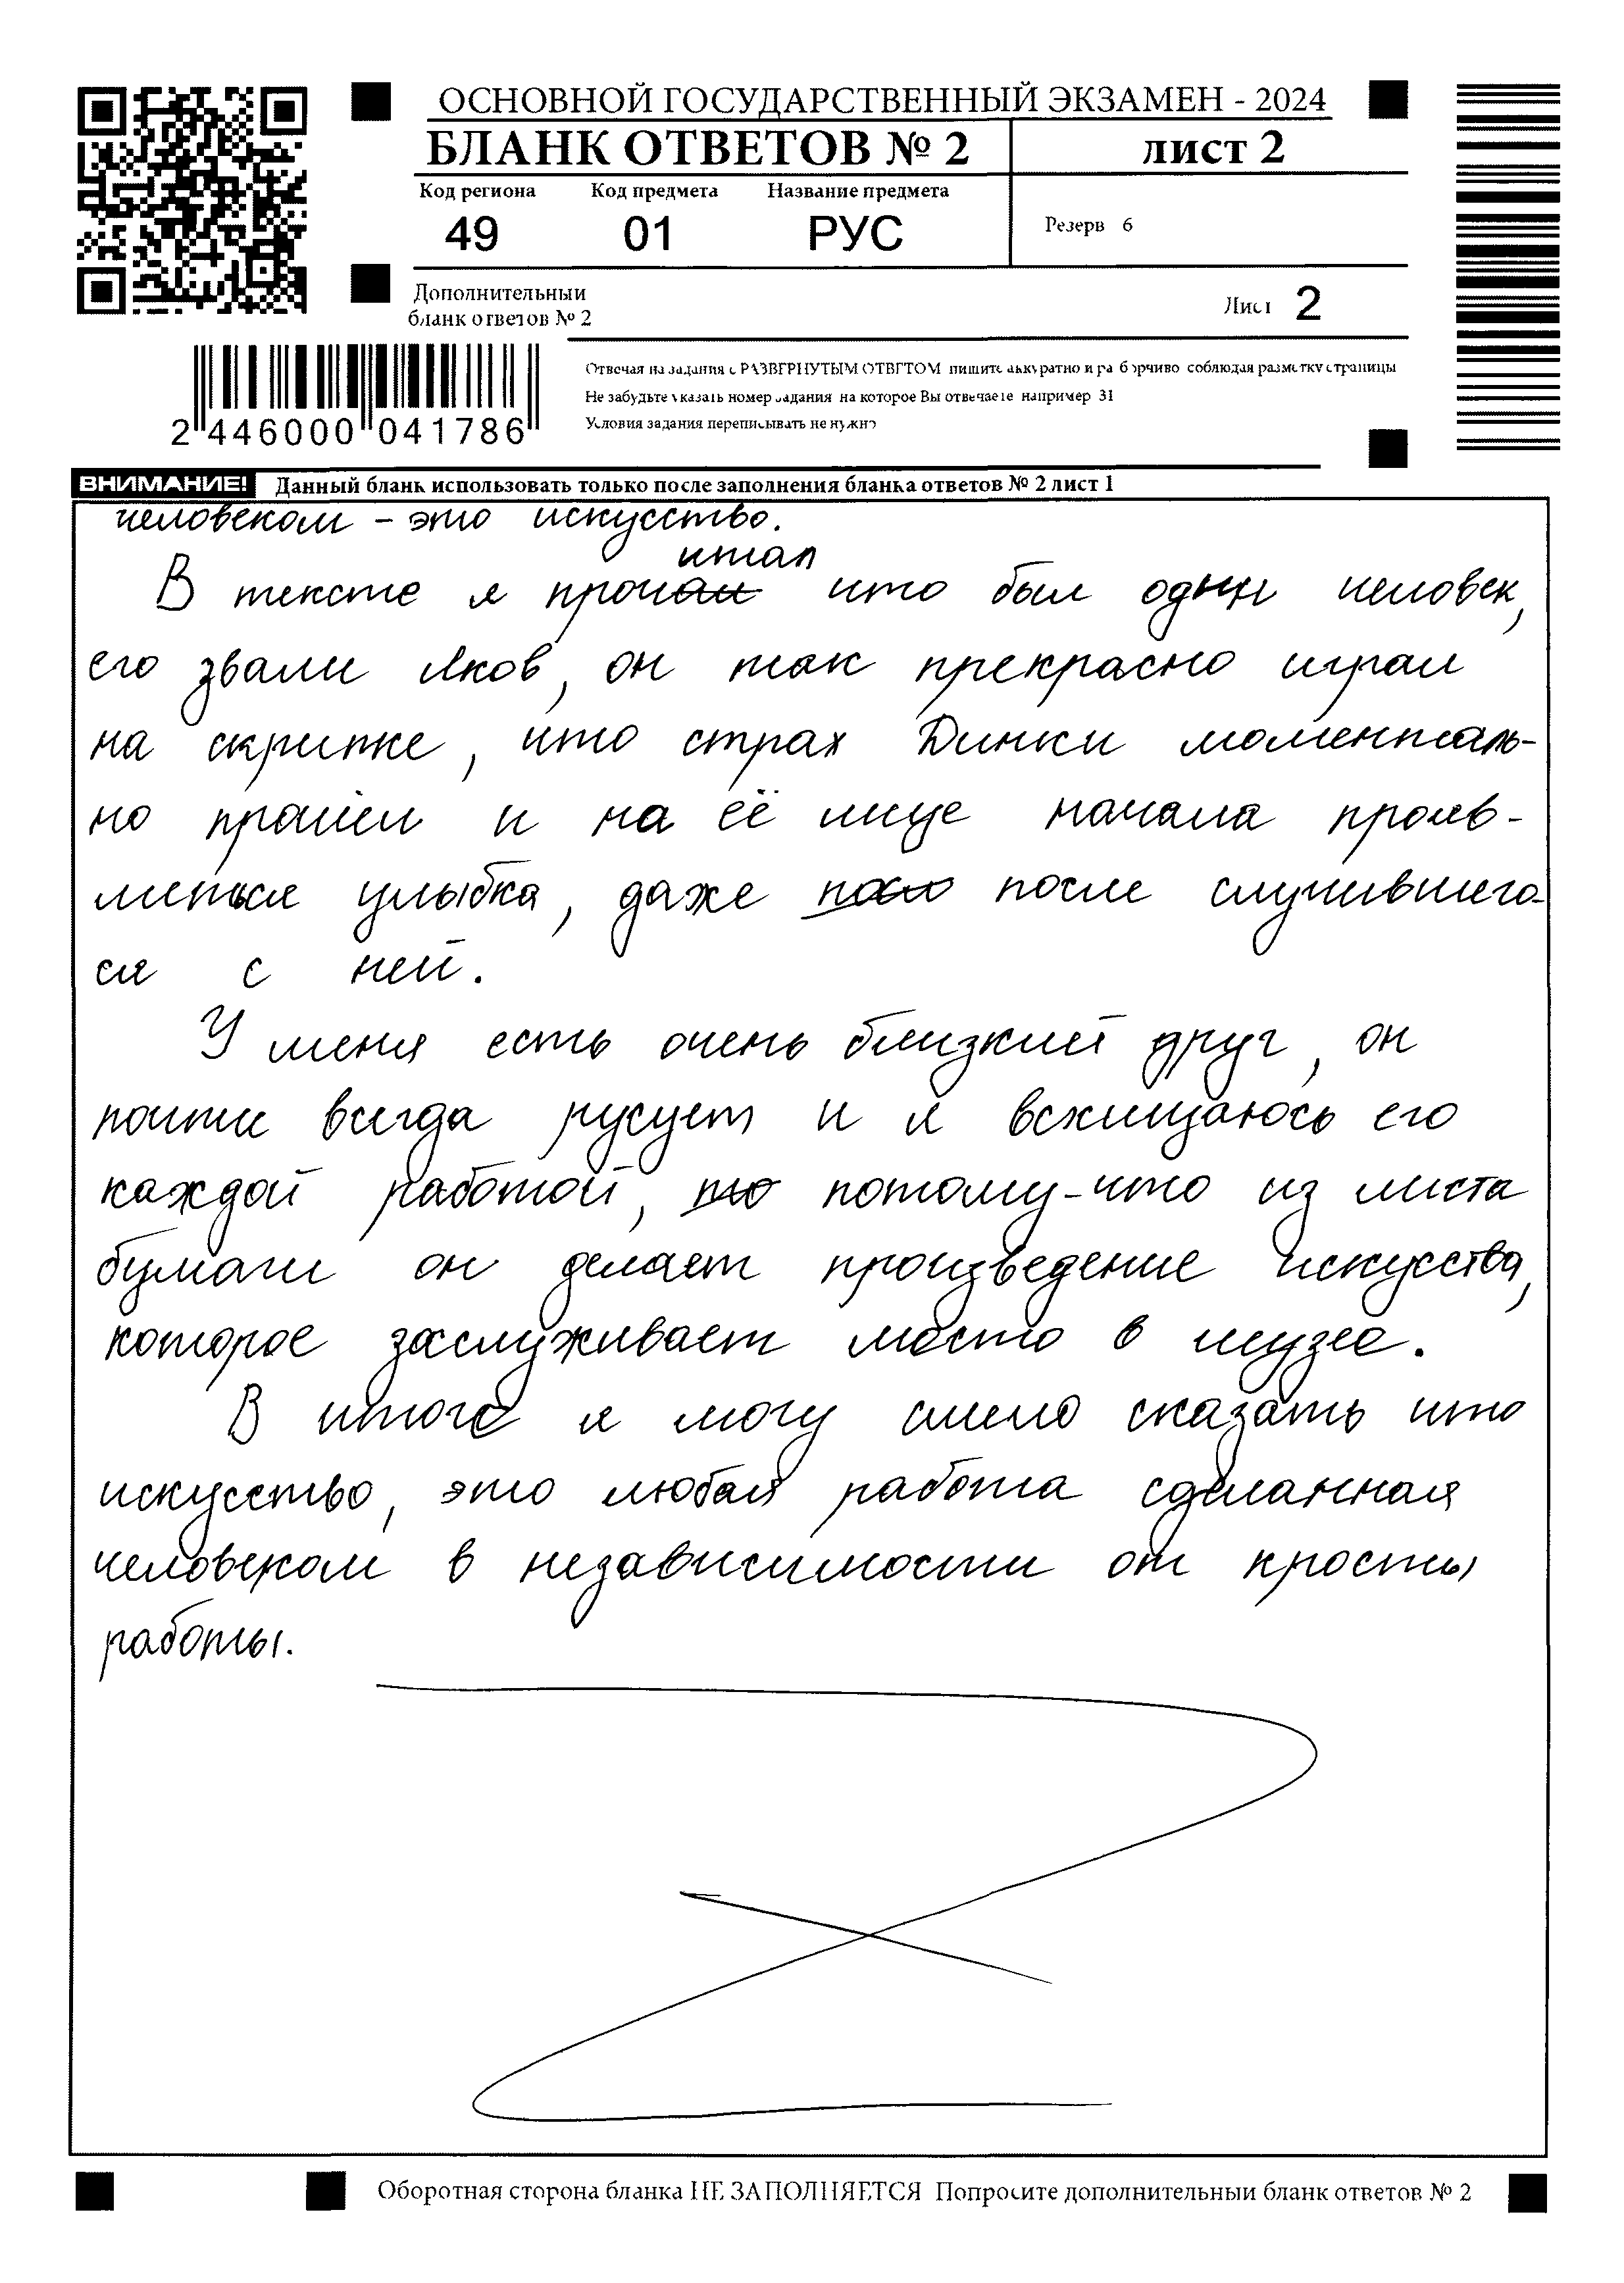 ОСНОВНОЙ ГОСУДАРСТВЕННЫЙ ЭКЗАМЕН - 2024
БЛАНК ОТВЕТОВ № 2
лист 2
Код региона Код предмета Название предмета
49 01 РУС
Резерв 6
Дополнительный
бланк ответов № 2
Лист 2
Отвечая на задания с РАЗВЕРНУТЫМ ОТВЕТОМ пишите аккуратно и разборчиво соблюдая разметку страницы
Не забудьте указать номер задания на которое Вы отвечаете например 31
Условия задания переписывать не нужно
2 446000 041786
ВНИМАНИЕ! Данный бланк использовать только после заполнения бланка ответов № 2 лист 1
человеком - это искусство.
В тексте я прочитал что был один человек,
его звали Яков, он так прекрасно играл
на скрипке, что страх Динки моменталь-
но прошёл и на её лице начала прояв-
ляться улыбка, даже после случившего-
ся с ней.
У меня есть очень близкий друг, он
почти всегда русует и я всхищаюсь его
каждой работой, потому-что из листа
бумаги он делает произведение искусства,
которое заслуживает место в музее.
В итоге я могу смело сказать что
искусство, это любая работа сделанная
человеком в независимости от кросты
работы.
Оборотная сторона бланка НЕ ЗАПОЛНЯЕТСЯ Попросите дополнительный бланк ответов № 2